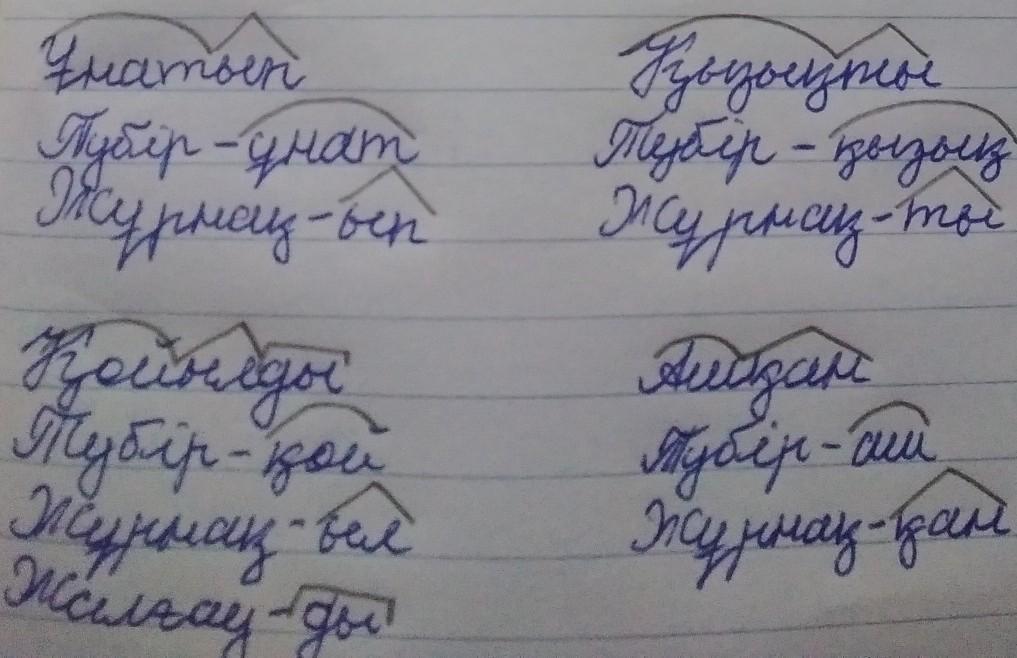 Ұнатып
Түбір - ұнат
Жұрнақ - ып
Қызықты
Түбір - қызық
Жұрнақ - ты
Қойылды
Түбір - қой
Жұрнақ - ыл
Жалғау - ды
Ашқан
Түбір - аш
Жұрнақ - қан